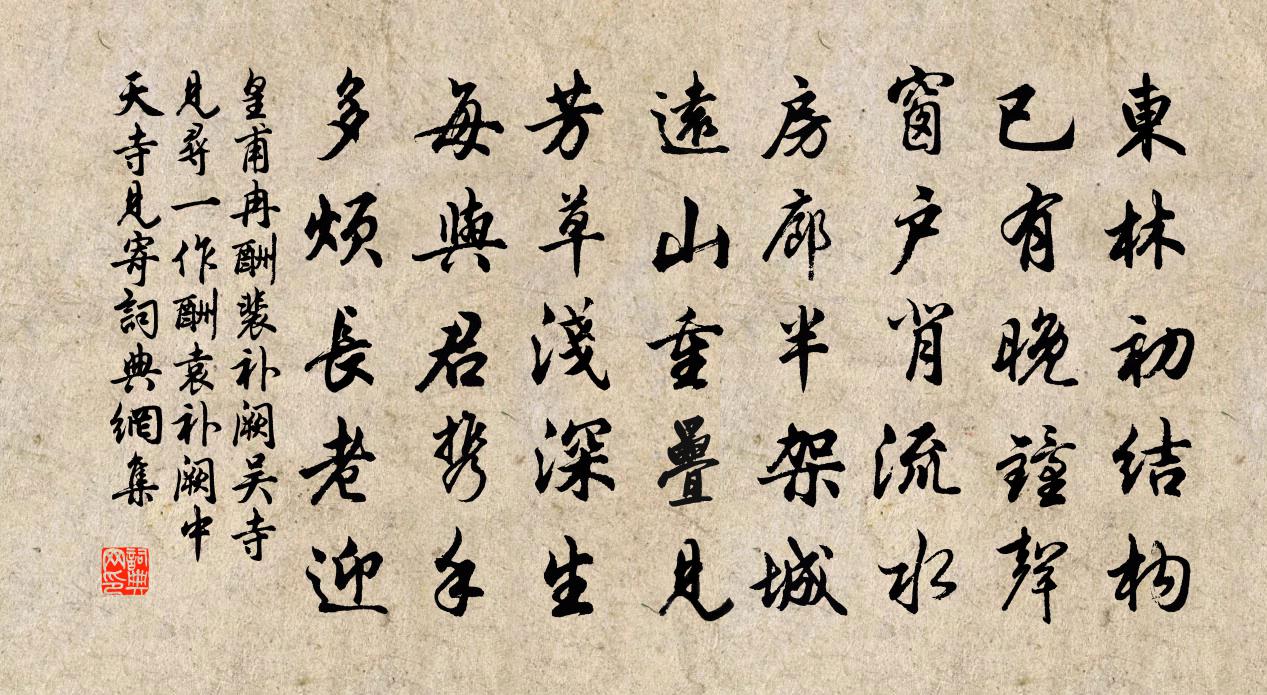 東林初結构
已有晚鐘聲
窗户肖流水
房廊半架城
遠山重疊見
芳草淺深生
每與君携手
多煩長老迎
皇甫冉酬裴补阙吴寺
見尋一作酬袁补阙中
天寺見寄詞典網集
詞典網印